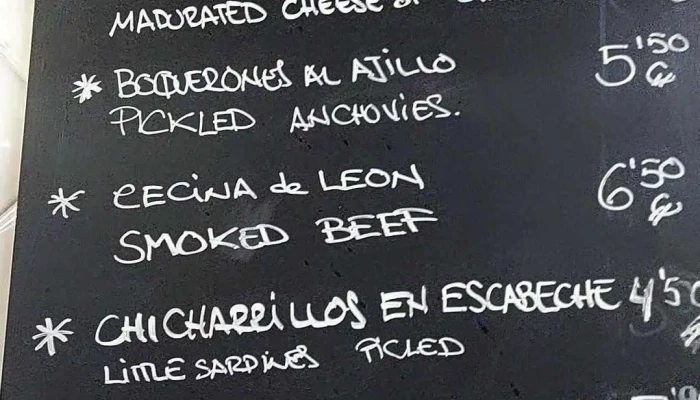 MADURATED CHEESE OF
* BOQUERONES AL AJILLO 5'50 €
PICKLED ANCHOVIES.
* CECINA de LEON 6'50 €
SMOKED BEEF
* CHICHARRILLOS EN ESCABECHE 4'50
LITTLE SARDINES PICLED